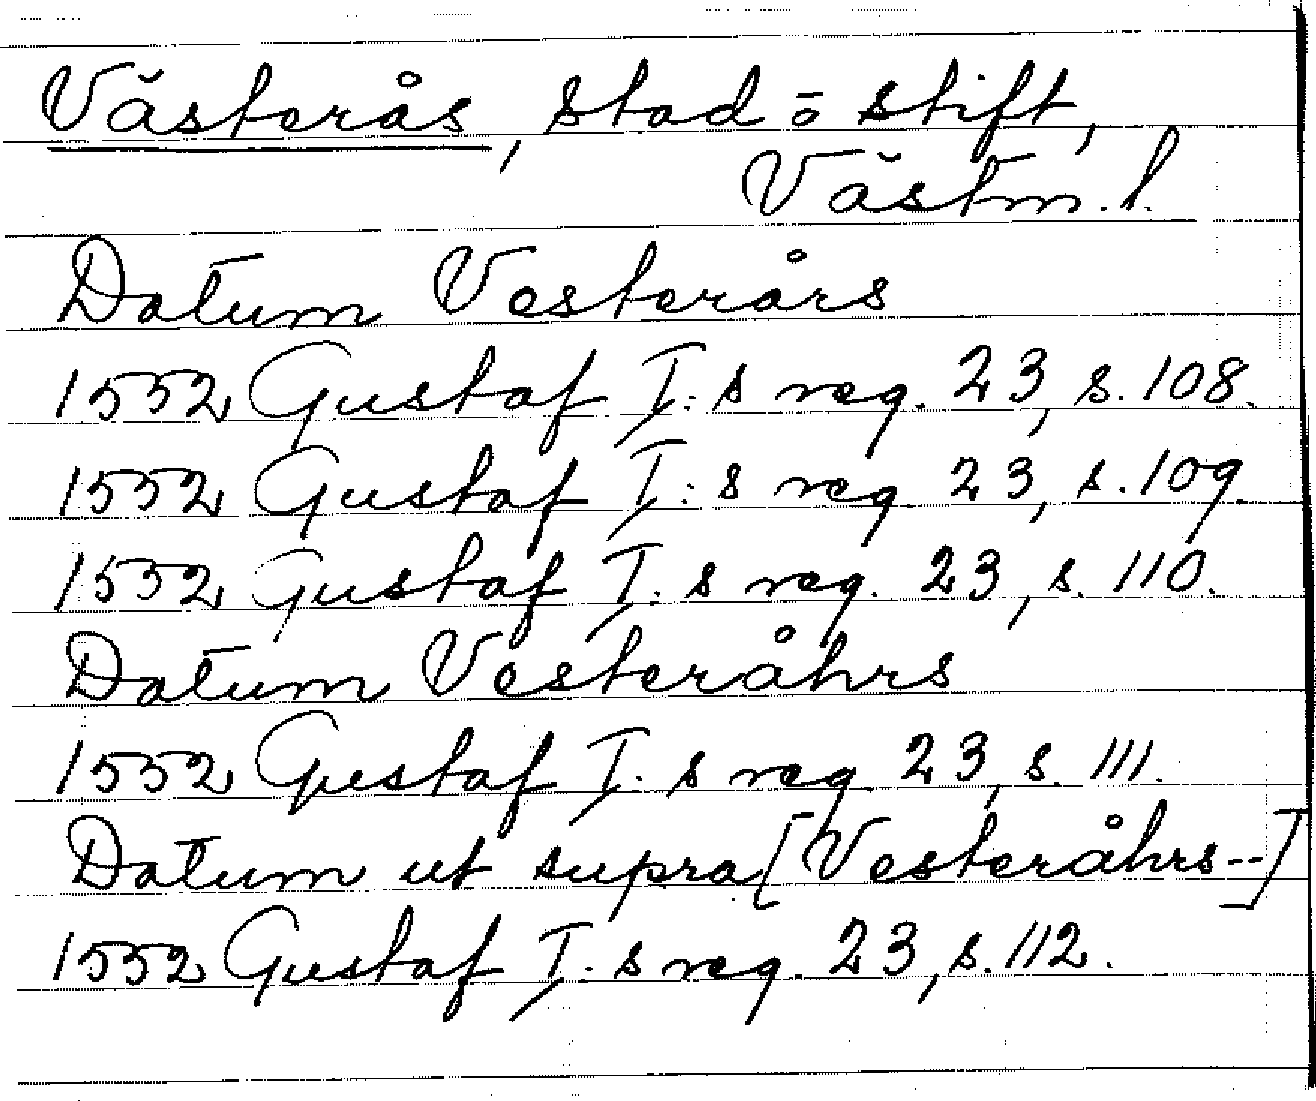 Västerås, stad o stift,
Västm. l.
Datum Vesterårs
1552 Gustaf I:s reg. 23, s. 108.
1552 Gustaf I:s reg. 23, s. 109.
1552 Gustaf I:s reg. 23, s. 110.
Datum Vesteråhrs
1552 Gustaf I:s reg. 23, s. 111.
Datum ut supra [Vesteråhrs--]
1552 Gustaf I:s reg. 23, s. 112.